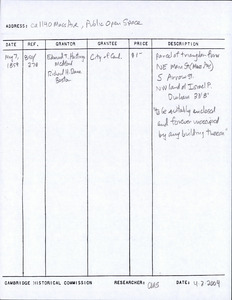 ADDRESS: ca 1140 Mass Ave, Public Open Space
DATE REF. GRANTOR GRANTEE PRICE DESCRIPTION
May 7, 1859
Edward T. Hastings
Medford
Richard H. Dana
Boston
City of Camb.
$1-
parcel of triangular form
NE Main St (Mass Ave)
S Arrow St
NW land of Israel P.
"to be suitably enclosed
and forever unoccupied
by any building thereon"
CAMBRIDGE HISTORICAL COMMISSION RESEARCHER: CMS DATE: 4.2.2004